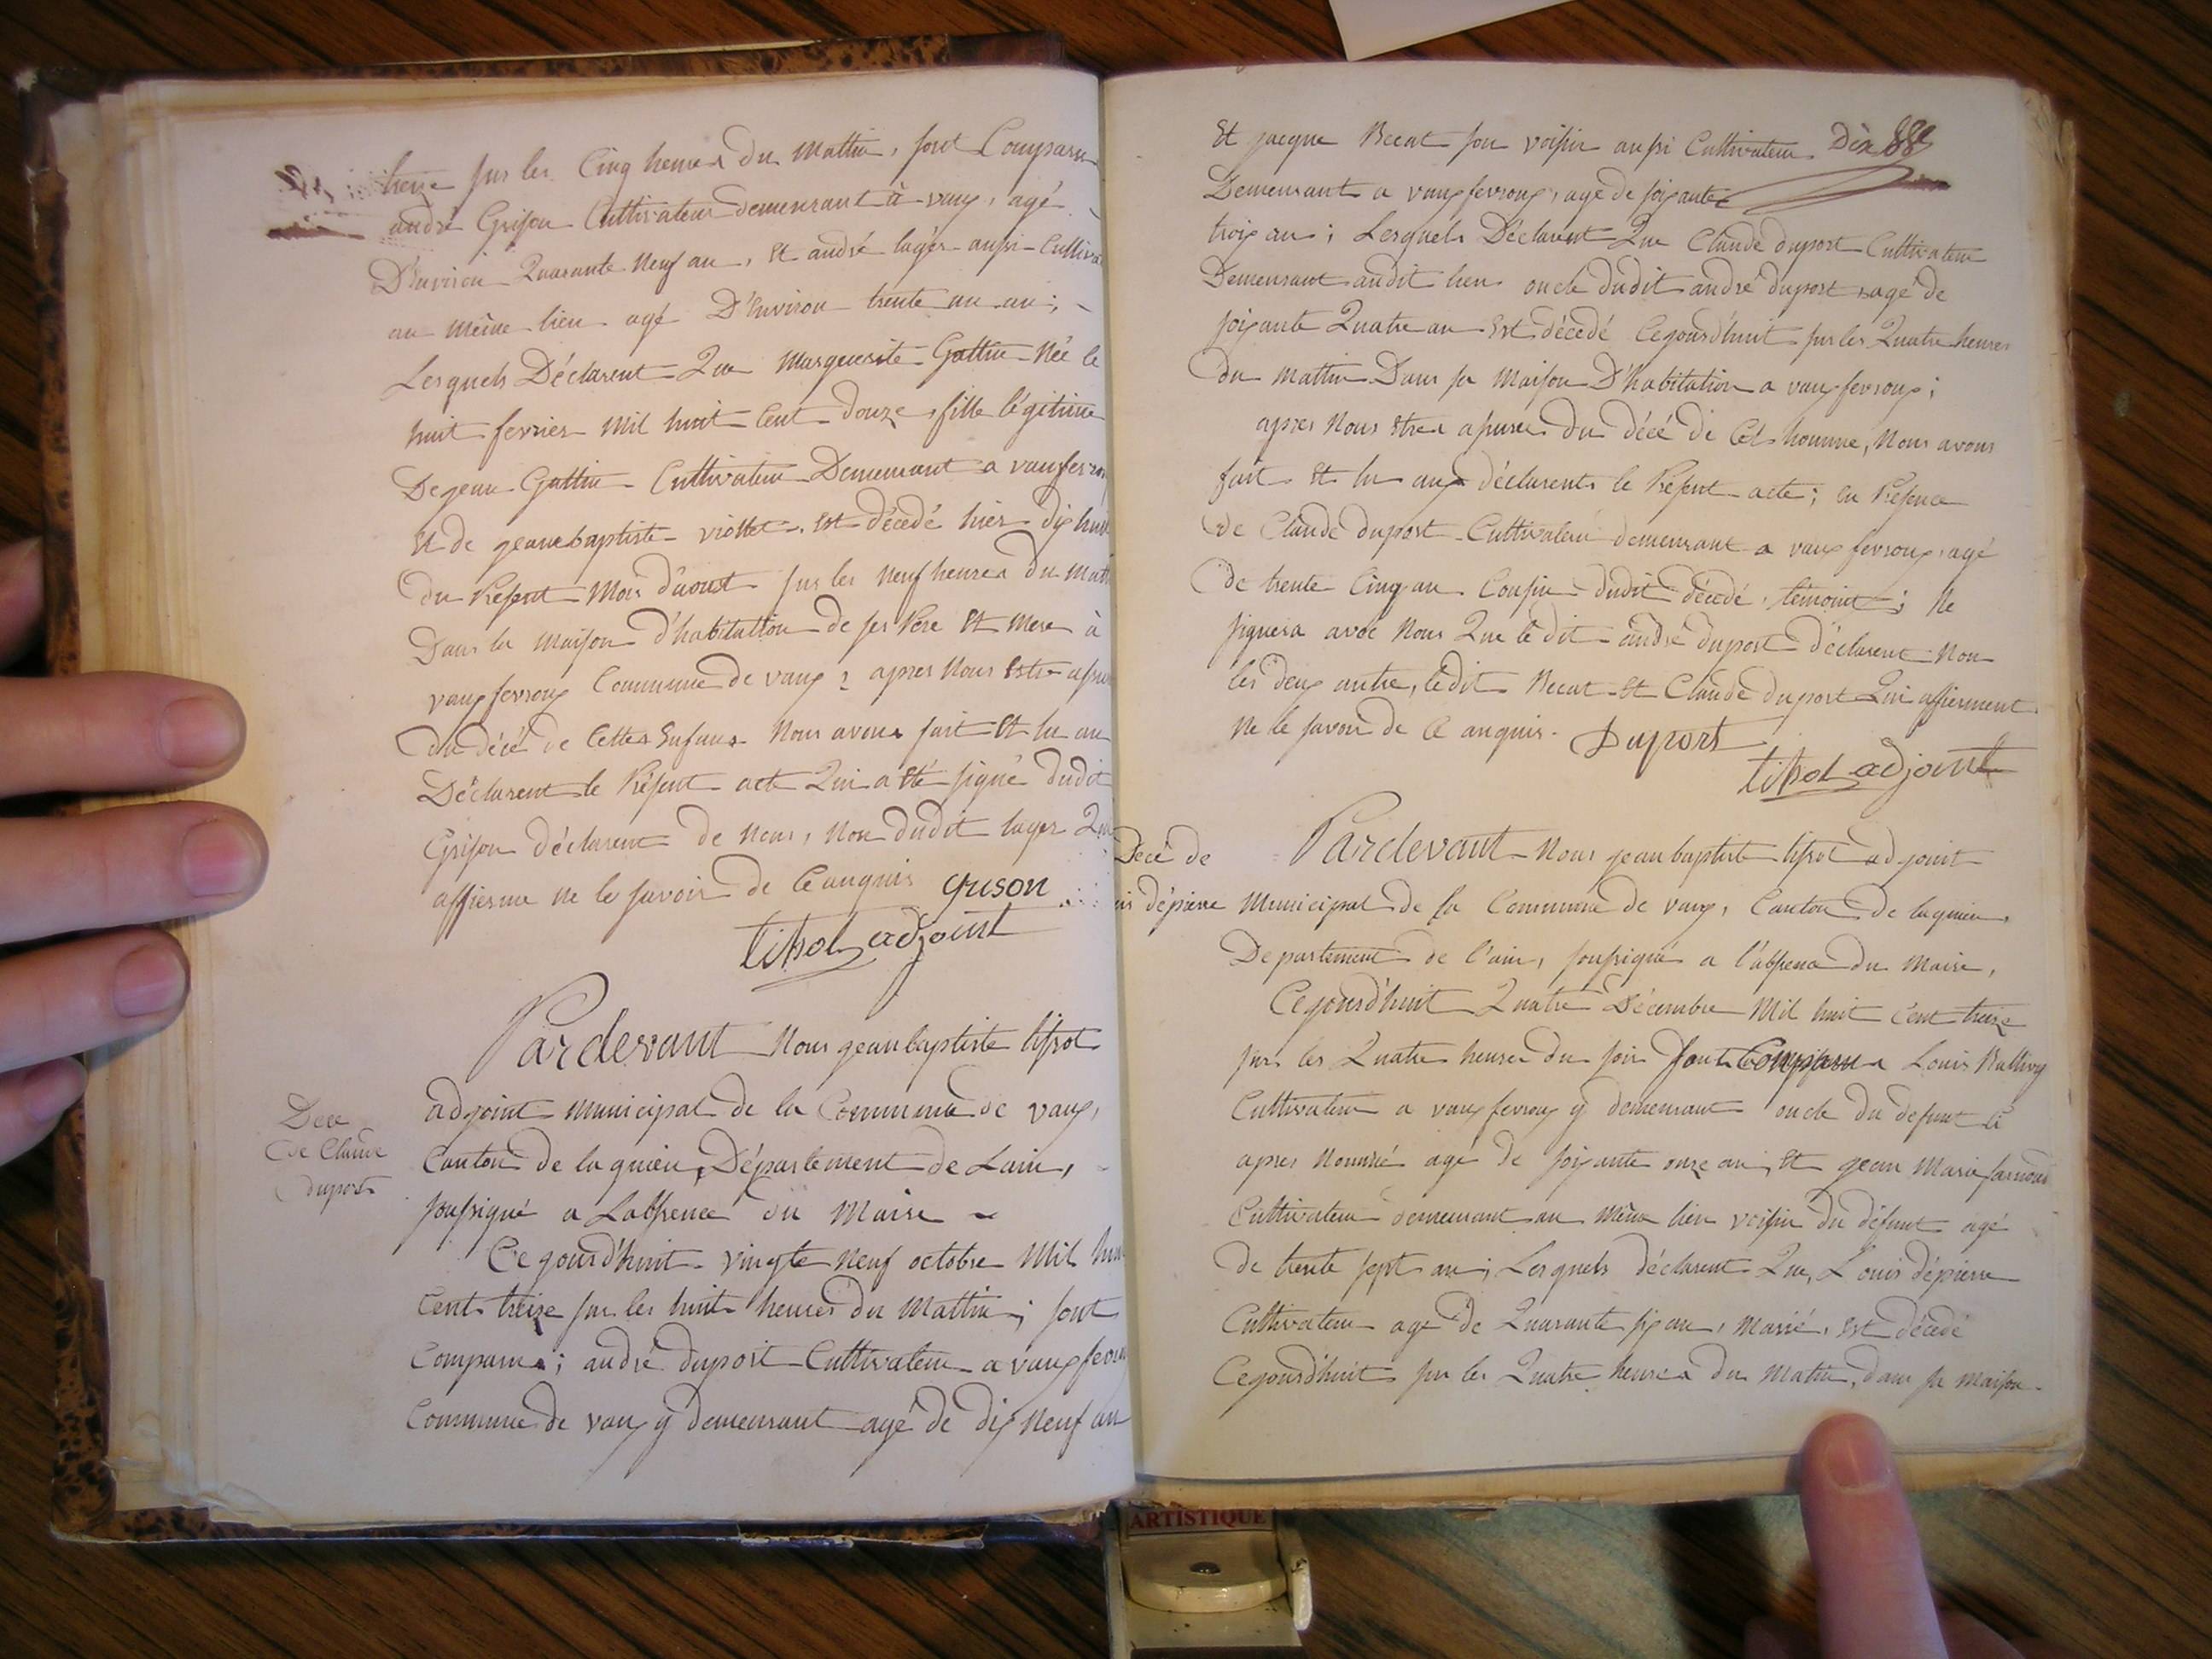 treize sur les Cinq heures du mattin, sont Comparu
andré Grison Cultivateur demeurant à vaux, agé
D'environ Quarante Neuf an, Et andré lager aussi Cultiva
au même lieu agé D'Environ trente un an;
Lesquels Déclarent Que Marguerite Gottin Née le
huit fevrier mil huit Cent douze, fille légitime
De jean Gottin Cultivateur Demeurant a vaux fevrou
Et de jeanne baptiste viollet, Est décedé hier dix huit
du Présent Mois d'aoust sur les neuf heures du matt
Dans la maison d'habitation de ses Pere Et Mere à
vaux fevroux Commune de vaux; apres Nous Estre assu
du décé de Cettes Enfans Nous avons fait Et lu au
Déclarent le Présent acte Qui a Eté signé dudit
Grison déclarent de Nous, Non dudit lager Qui
affierme ne le savoir de Ce anquis Grison
tissot adjoint
Pardevant Nous jean baptiste tissot
Dece
de Claude
duport
adjoint municipal de la Commune de vaux,
Canton de lagnieu, Département de Lain,
soussigné a Labssence du Maire
Ce jourd'huit vingte neuf octobre Mil hui
Cent treize sur les huit heures du Mattin; sont
Comparus; andré duport Cultivateur a vaux fevrou
Commune de vaux y demeurant agé de dix Neuf an
Et jacque Recat son voisin aussi Cultivateur Dix 88e
Demeurant a vaux fevroux, agé de soixante
trois an; Lesquels Déclarent Que Claude duport Cultivateur
Demeurant audit lieu oncle dudit andré duport agé de
soixante Quatre an Est décedé Cejourd'huit sur les Quatre heures
du mattin Dans sa Maison D'habitation a vaux fevroux;
apres Nous Estres assurés du décé de Cet homme, Nous avons
fait Et lu aux déclarents le Présent acte; En Présence
de Claude duport Cultivateur demeurant a vaux fevroux, agé
de trente Cinq an Cousin dudit décedé, témoint; Ne
signera avec Nous Que le dit andré duport déclarent Non
les deux autre, ledit Recat Et Claude duport Qui affierment
Ne le savoir de Ce anquis. Duport
tissot adjoint
Décé de
Pardevant Nous jean baptiste tissot adjoint
is dépierre
Municipal de la Commune de vaux, Canton de lagnieu,
Departement de l'ain, soussigné a l'abssence du Maire,
Cejourd'huit Quatre Décembre Mil huit Cent treize
sur les Quatre heures du soir sont Comparu Louis
Cultivateur a vaux fevroux y demeurant oncle du defunt Ci
apres Nommé agé de soixante onze an, Et jean Marie
Cultivateur demeurant au même lieu voisin du défunt agé
de trente sept an; Lesquels déclarent Que, Louis dépierre
Cultivateur agé de Quarante six an, Marié, Est décedé
Cejourd'huit sur les Quatre heures du Matin, dans sa maison
ARTISTIQUE